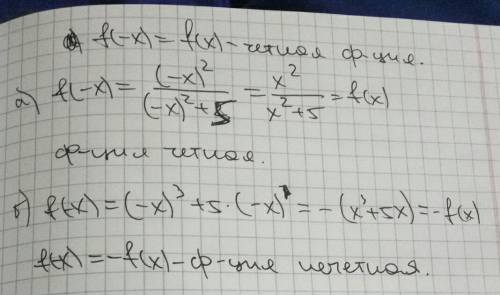 f(-x) = f(x) - четная ф-ция.
а) f(-x) = (-x)²/((-x)²+5) = x²/(x²+5) = f(x)
ф-ция четная.
б) f(-x) = (-x)³+5·(-x) = -(x³+5x) = -f(x)
f(-x) = -f(x) - ф-ция нечетная.